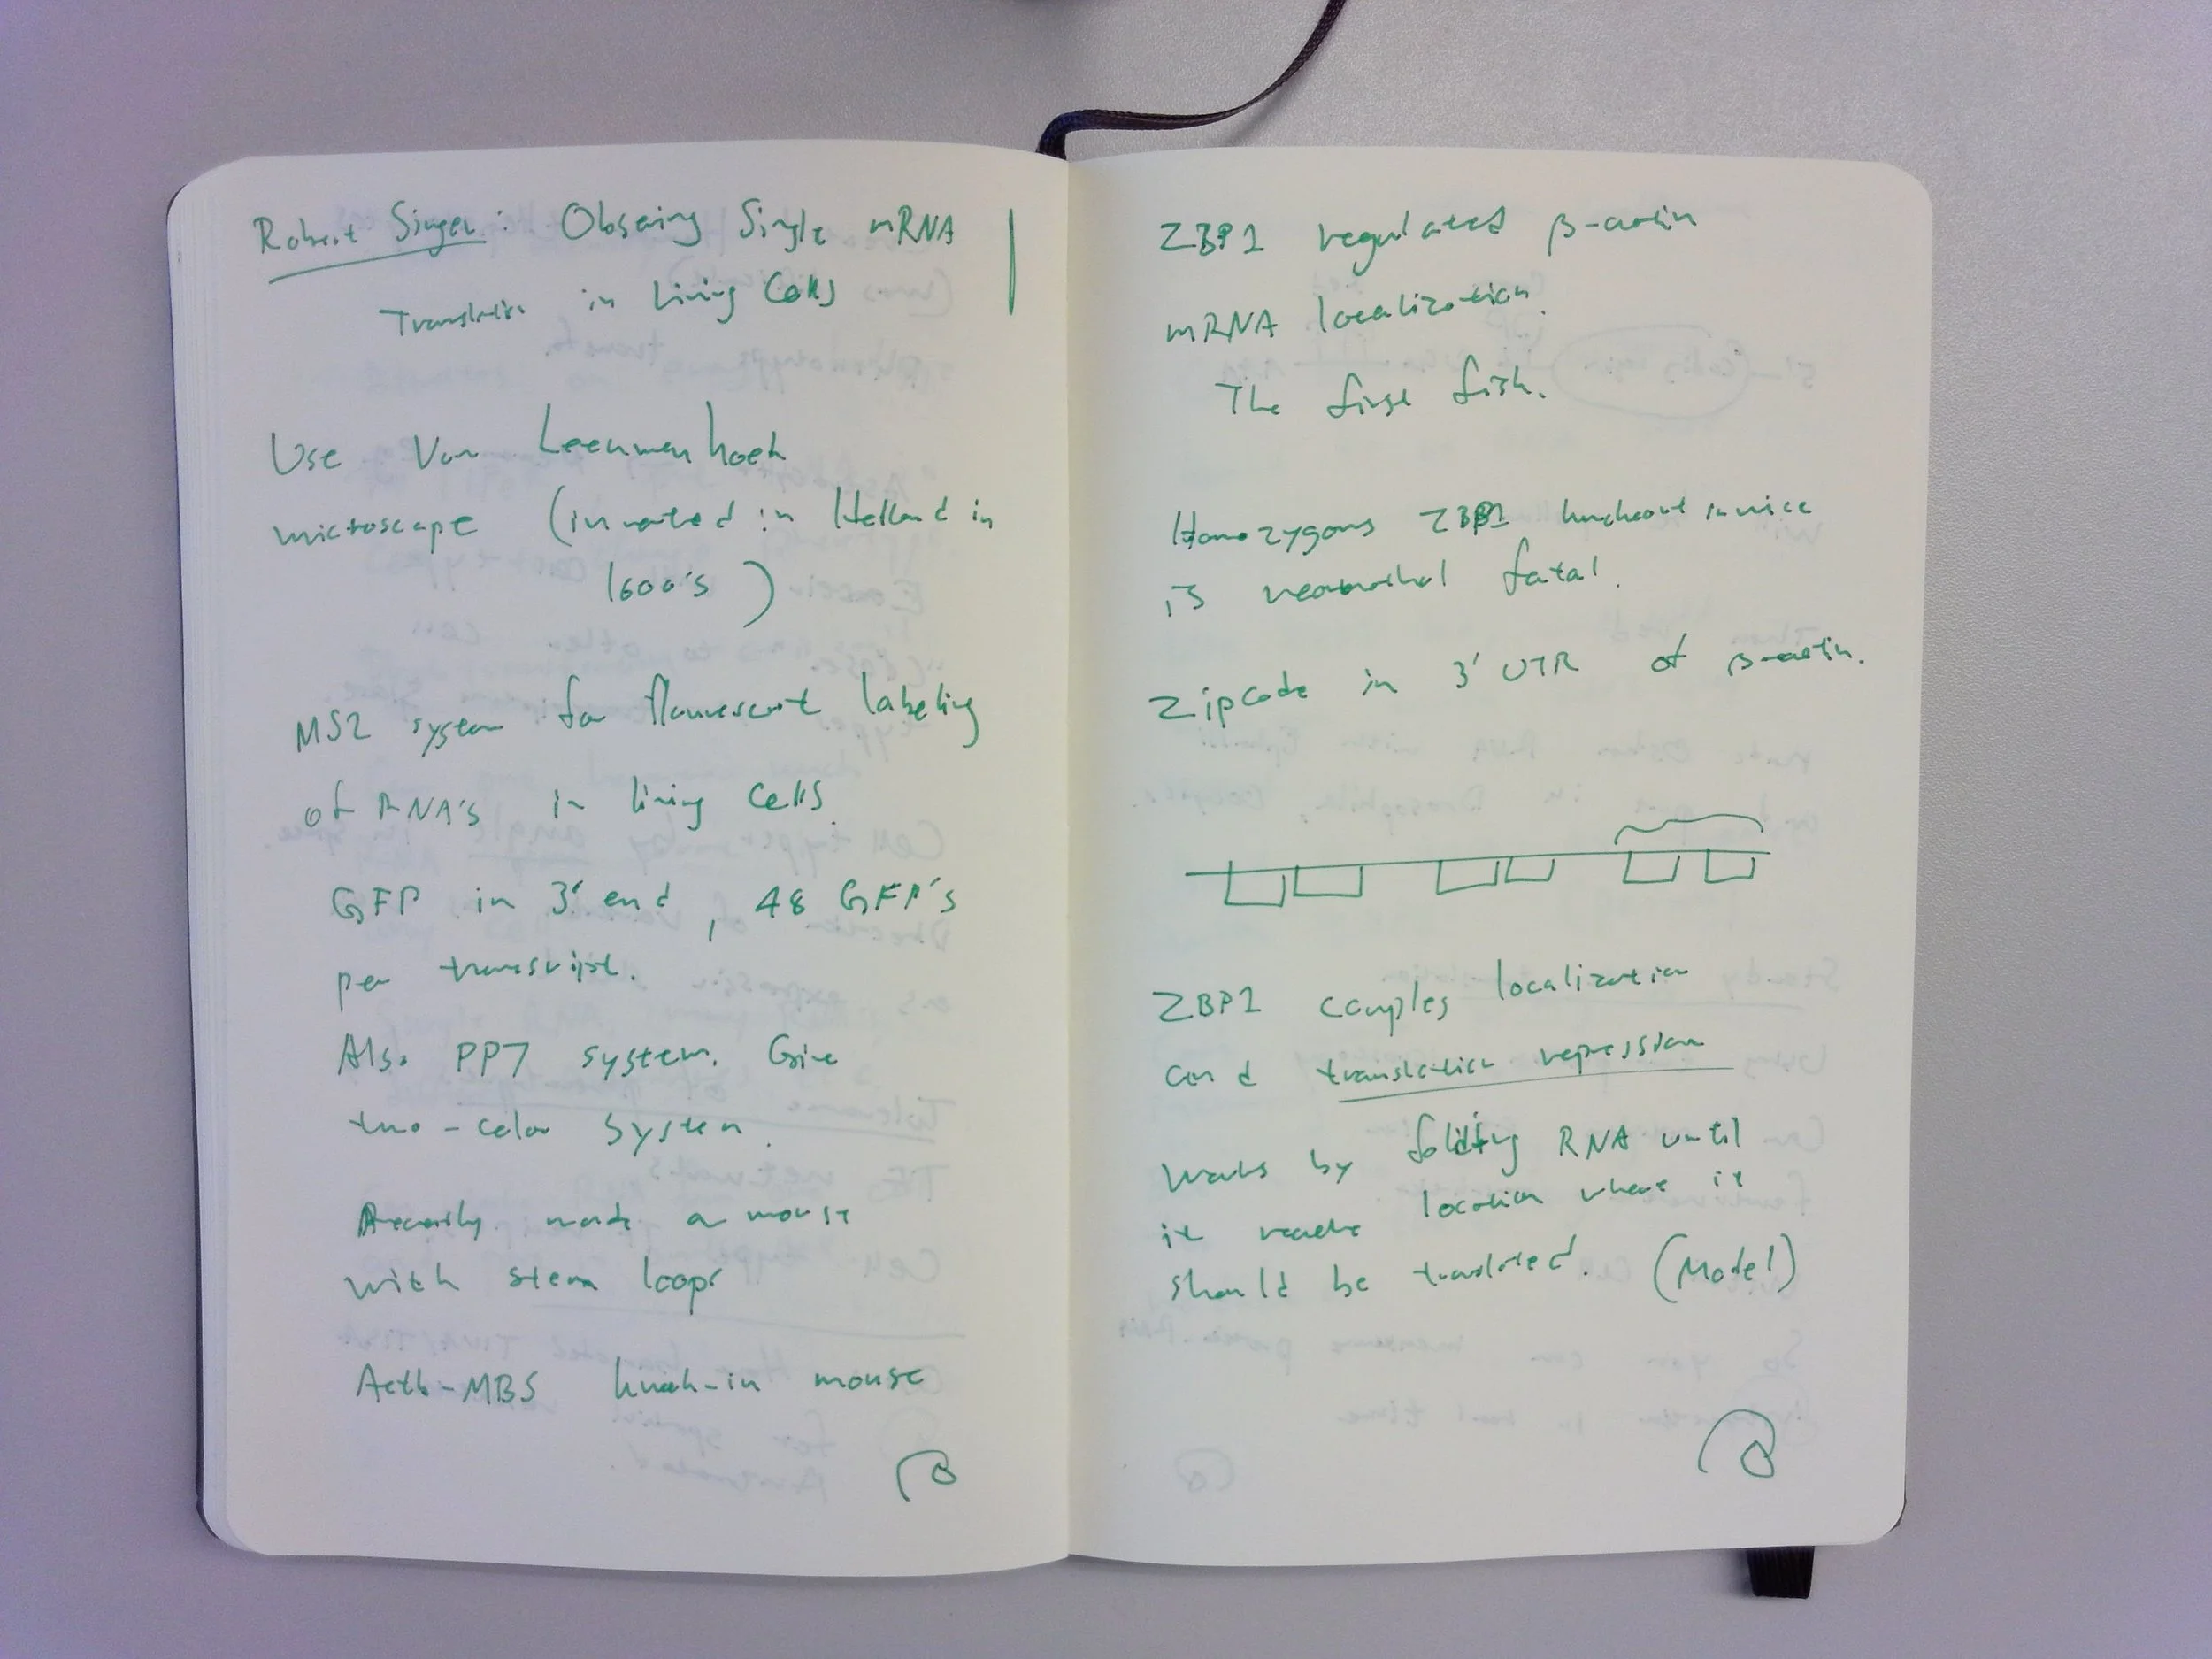 Robert Singer: Obsering Single mRNA
Translation in Living Cells
Use Van Leeuwenhoek
microscope (invented in Holland in
1600's)
MS2 system for flourescent labeling
of RNA's in living cells.
GFP in 3' end, 48 GFP's
per transcript.
Also PP7 system. Give
two-color system.
Recently made a mouse
with stem loops
Actb-MBS knock-in mouse
ZBP1 regulates β-actin
mRNA localization.
The first fish.
Homozygous ZBP1 knockout in mice
is neonathal fatal.
Zipcode in 3' UTR of β-actin.
ZBP1 couples localization
and translation repression
Works by folding RNA until
it reache location where it
should be translated. (Model)